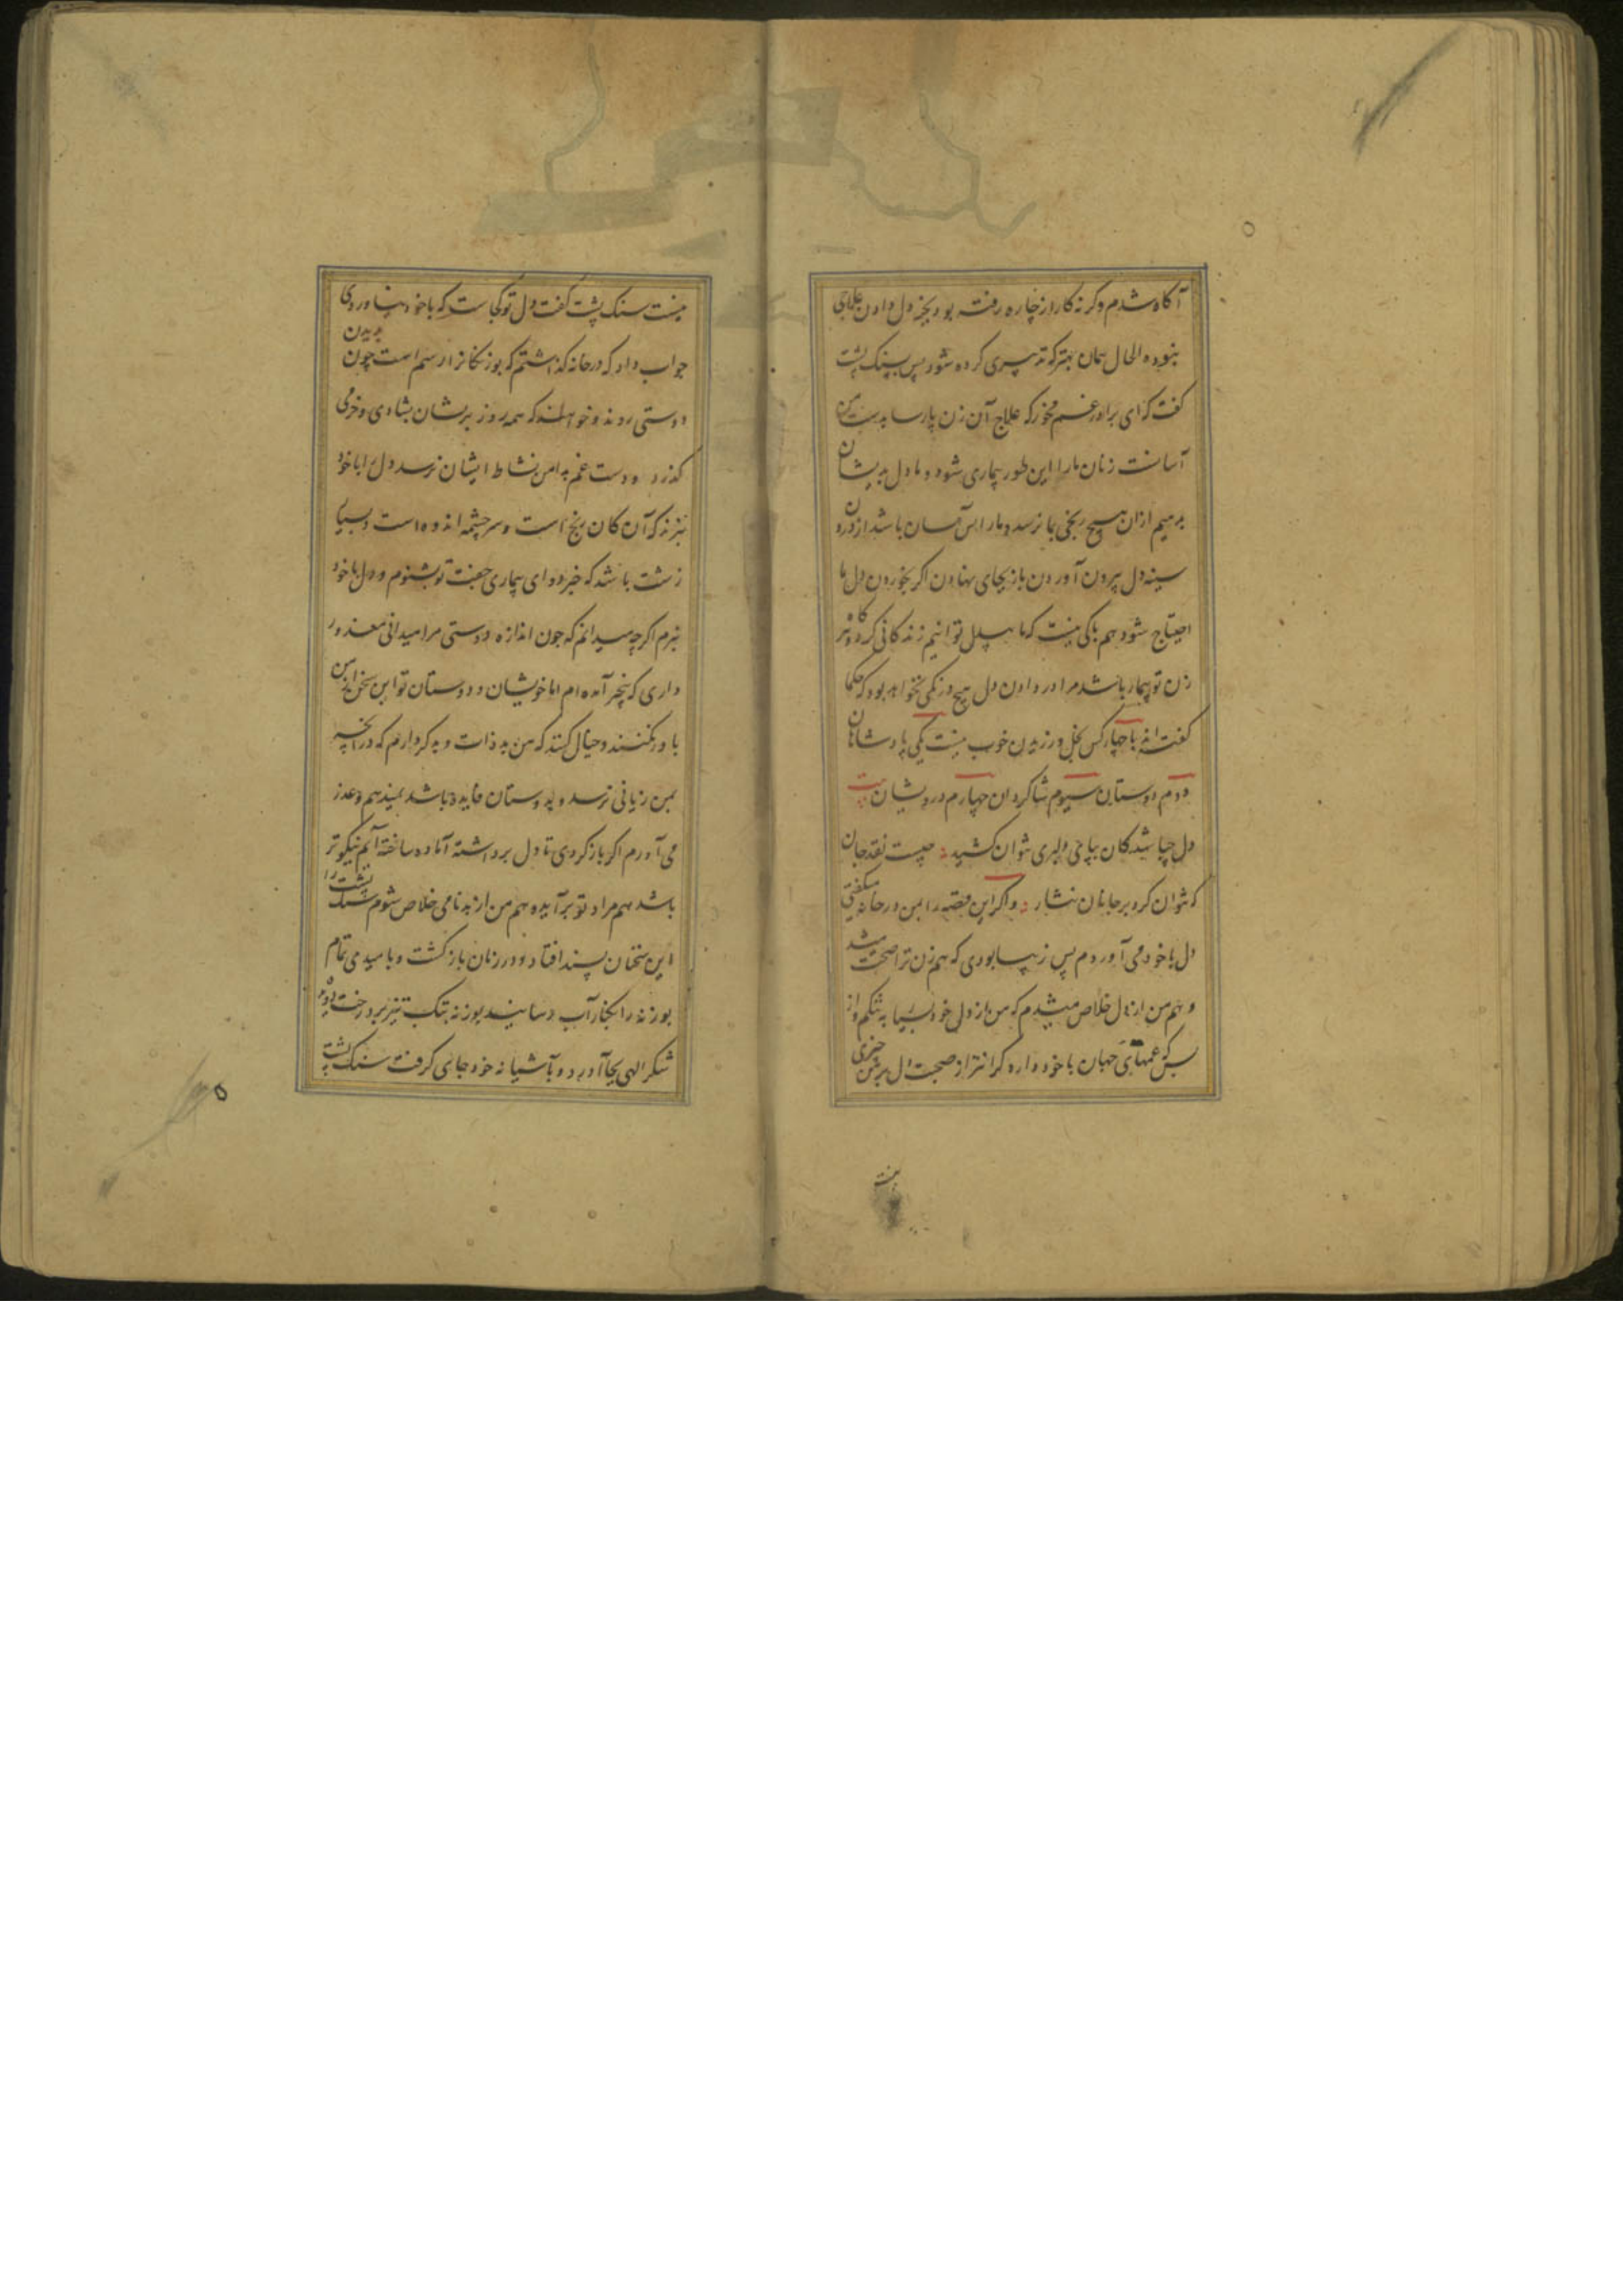 آکاه شدم وکرنه کار از چاره رفته بود بجز دل دادن علاجی
نبود ه الحال همان بهتر که تدبیری کرده شود پس بسنک پشت
کفت که ای برادر غم مخور که علاج آن زن پارسا بدست من
آسانست زنان ما را این طور بیماری شود و ما دل بدیشان
بدهیم ازان هیچ رنجی بما نرسد و ما را آسان باشد از درون
سینه دل بیرون آوردن باز بجای نهادن اکر بخوردن دل ما
احتیاج شود هم باکی نیست که ما بیدل توانیم زندکانی کرد هرکاه
زن تو بیمار باشد مرا در دادن دل هیچ درنکی نخواهد بود که حکما
کفته اند با چهار کس بخل ورزیدن خوب نیست یکی پادشاهان
دوم دوستان سیوم شاکردان چهارم درویشان بیت
دل چباشد کان بپاحی دلبری نتوان کشید چیست نقد جان
که نتوان کرد بر جانان نثار و اکر این قصه را بمن در خانه میکفتی
دل با خود می آوردم پس زیبا بودی که هم زن ترا صحت میشد
و هم من از دل خلاص میشدم که من از دل خود بسیار به تنکم و از
بس که غمهای جهان با خود دارد کرانتر از صحبت دل بر من چیزی
نیست
نیست سنک پشت کفت دل تو کجاست که با خود نیاوردی
جواب داد که در خانه کذاشتم که بوزنکانرا رسم است چون بدیدن
دوستی روند و خواهند که همه روز بر ایشان بشادی و خرمی
کذرد و دست غم بدامن نشاط ایشان نرسد دل را با خود
نبرند که آن کان رنج است و سرچشمه اندوه است و بسیار
زشت باشد که خبر دوای بیماری جفت تو بشنوم و دل با خود
نبرم اکرچه میدانم که چون اندازه دوستی مرا میدانی معذور
داری که بیخبر آمده ام اما خویشان و دوستان تو این سخن از من
باور نکنند و خیال کنند که من بد ذات و بد کردارم که در آنچه
بمن زیانی نرسد و بدوستان فایده باشد نمیدهم و عذر
می آورم اکر باز کردی تا دل برداشته آماده ساخته آیم نیکوتر
باشد هم مراد تو برآید و هم من از بدنامی خلاص شوم سنک پشت را
این سخنان پسند افتاد و در زمان بازکشت و بامیدی تمام
بوزنه را بکنار آب رسانید بوزنه بتک تیز بر درخت دوید
شکر الهی بجا آورد و بآشیانه خود جای کرفت سنک پشت